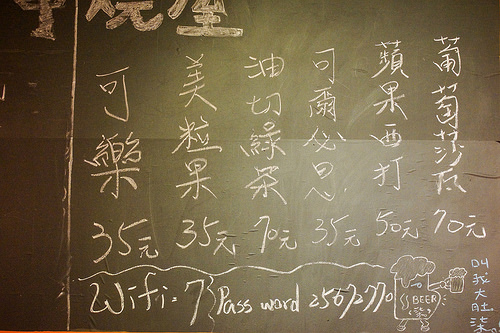 葡萄莎瓦 70元
蘋果西打 50元
可爾必思 35元
油切綠茶 70元
美粒果 35元
可樂 35元
Wifi: 7
Pass word
BEER
叫我大肚